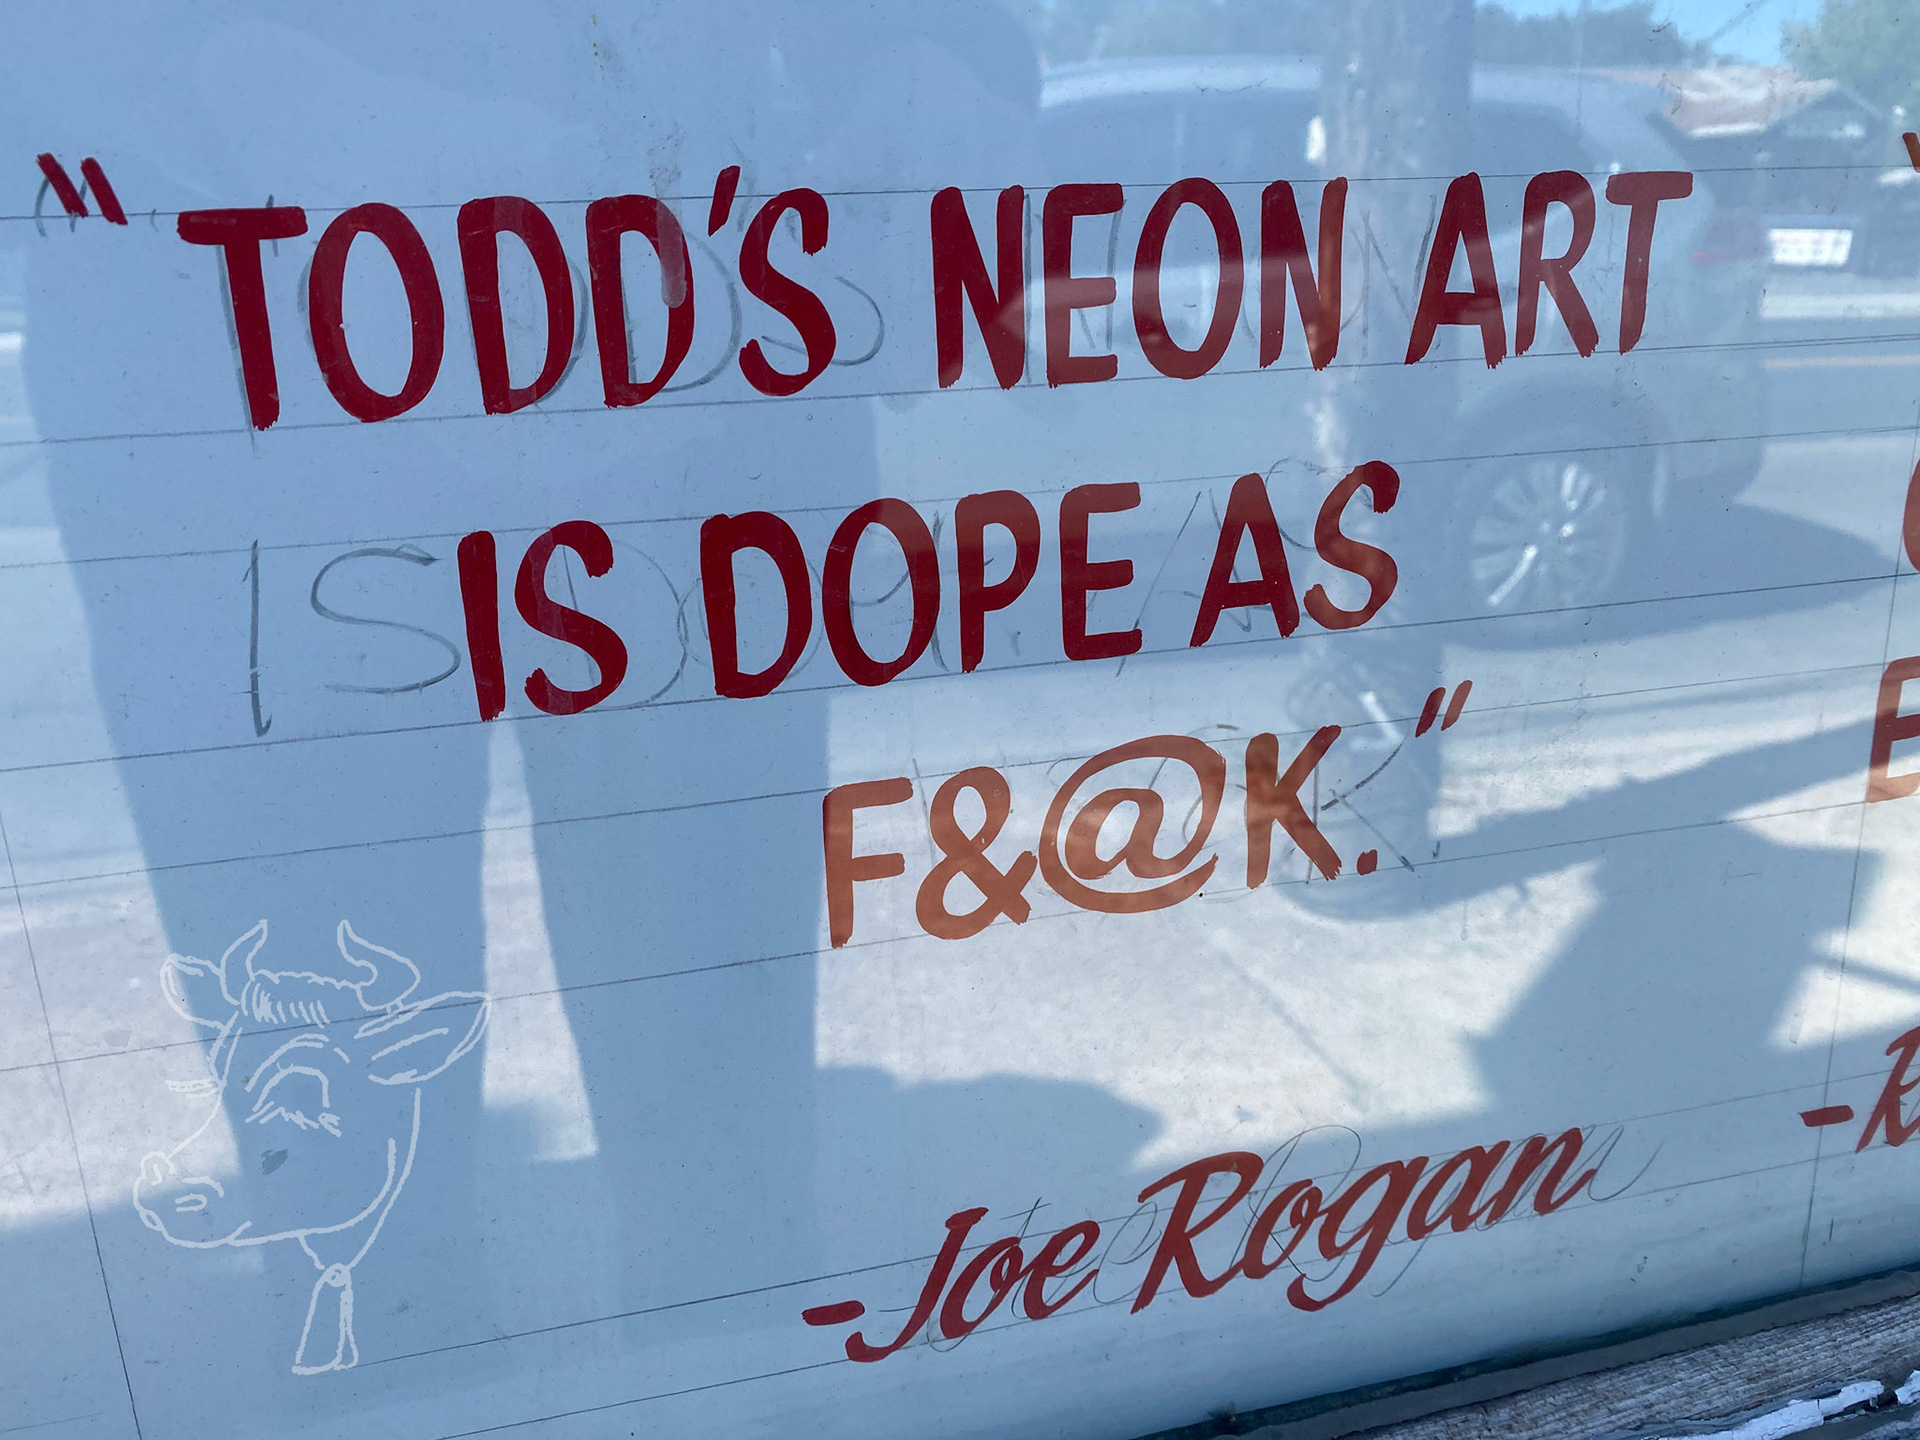 "TODD'S NEON ART
IS DOPE AS
F&@K."
-Joe Rogan